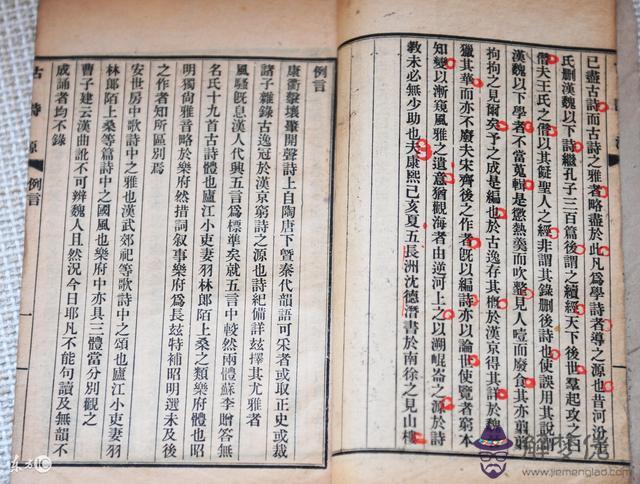 已盡古詩而古詩之雅者略盡於此凡爲學詩者導之源也昔河汾王
氏刪漢魏以下詩繼孔子三百篇後謂之續經天下後世羣起攻之曰
僭夫王氏之僭以其儗聖人之經非謂其錄刪後詩也使誤用其說謂
漢魏以下學者不當蒐輯是懲熱羹而吹齏見人噎而廢食其亦翦翦
拘拘之見爾矣予之成是編也於古逸存其槪於漢京得其詳於魏晉
獵其華而亦不廢夫宋齊後之作者旣以編詩亦以論世使覽者窮本
知變以漸窺風雅之遺意猶觀海者由逆河上之以溯崐崙之源於詩
敎未必無少助也夫康熙己亥夏五長洲沈德潛書於南徐之見山樓
古詩源
例言
一
例言
康衢擊壤肇開聲詩上自陶唐下曁秦代韻語可采者或取正史或裁
諸子雜錄古逸冠於漢京窮詩之源也詩紀備詳茲擇其尤雅者
風騷旣息漢人代興五言爲標準矣就五言中較然兩體蘇李贈答無
名氏十九首古詩體也廬江小吏妻羽林郎陌上桑之類樂府體也昭
明獨尚雅音略於樂府然措詞敘事樂府爲長茲特補昭明選未及後
之作者知所區別焉
安世房中歌詩中之雅也漢武郊祀等歌詩中之頌也廬江小吏妻羽
林郎陌上桑等篇詩中之國風也樂府中亦具三體當分別觀之
曹子建云漢曲訛不可辨魏人且然況今日耶凡不能句讀及無韻不
成誦者均不錄
www.jiemenglad.com